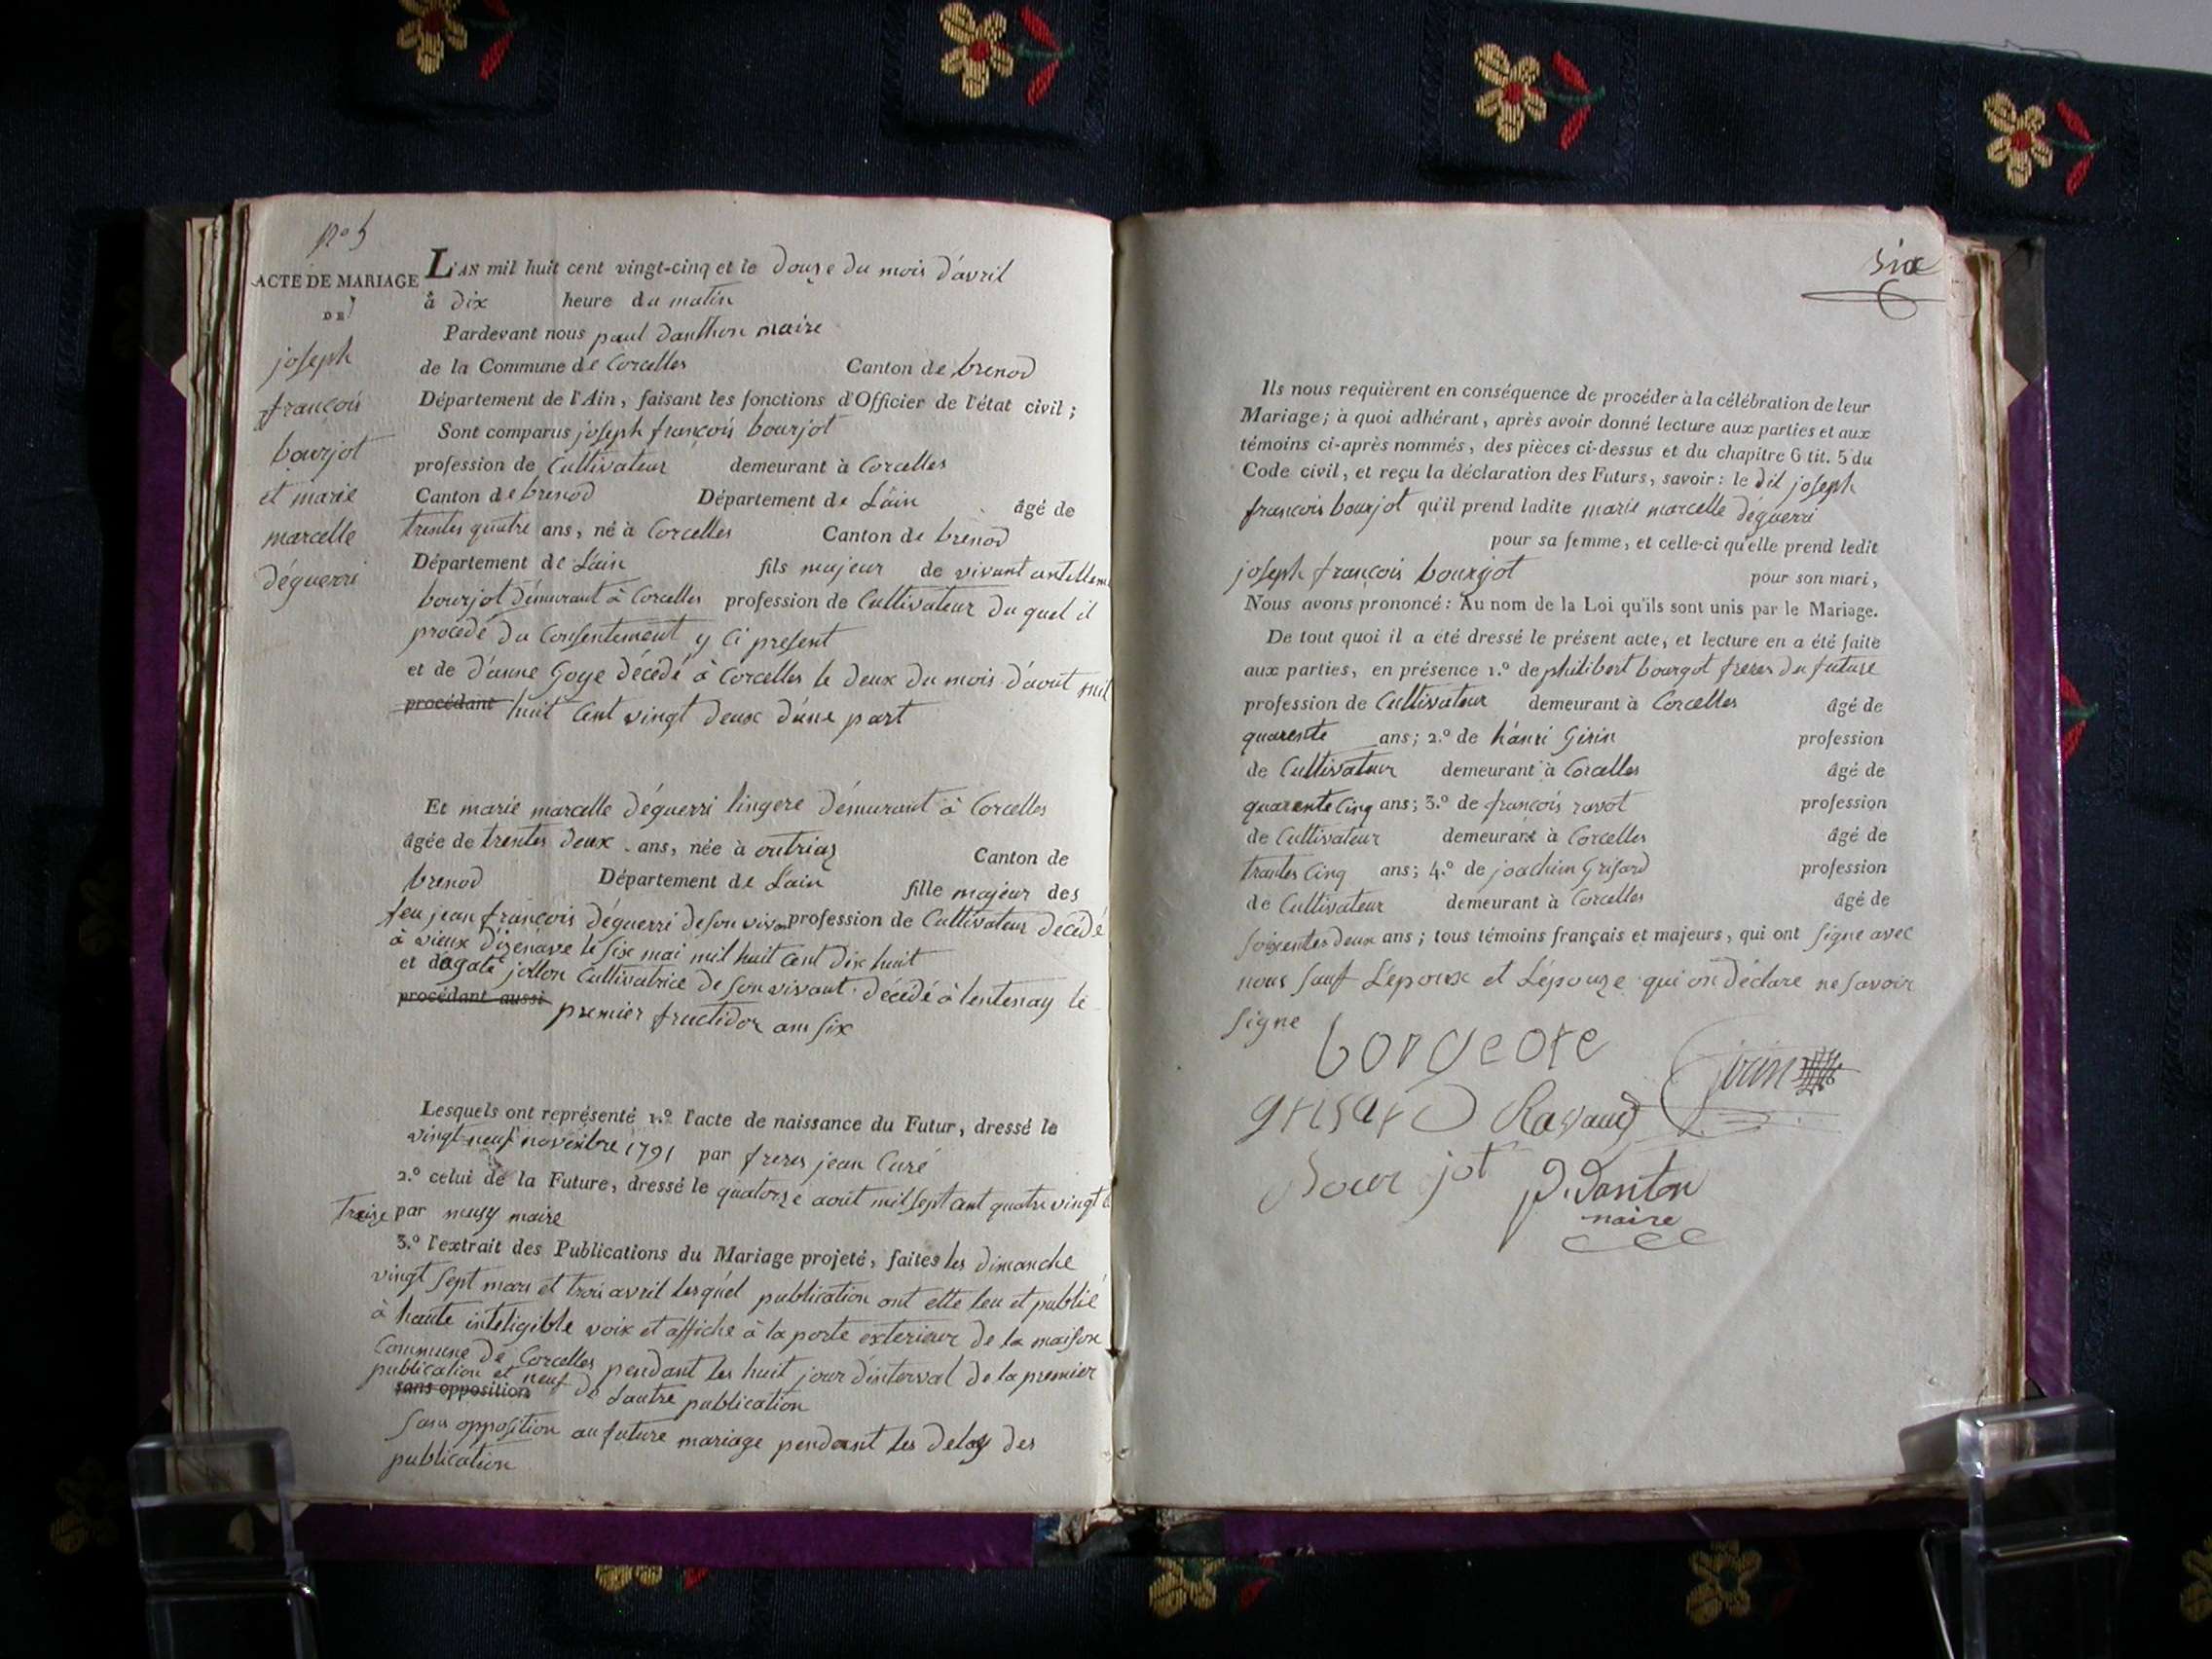 No 5
ACTE DE MARIAGE
DE
joseph
françois
bourjot
et marie
marcelle
déguerri
L'AN mil huit cent vingt-cinq et le douze du mois d'avril
à dix heure du matin
Pardevant nous paul danthon maire
de la Commune de Corcelles Canton de brenod
Département de l'Ain, faisant les fonctions d'Officier de l'état civil;
Sont comparus joseph françois bourjot
profession de Cultivateur demeurant à Corcelles
Canton de brenod Département de L'ain âgé de
trentes quatre ans, né à Corcelles Canton de brenod
Département de L'ain fils majeur de vivant
bourjot démurant à Corcelles profession de Cultivateur du quel il
procede du Consentement y Ci present
et de d'anne Goye décédé à Corcelles le deux du mois d'avout mil
procédant huit Cent vingt deux d'une part
Et marie marcelle déguerri lingere démurant à Corcelles
âgée de trentes deux ans, née à outriaz Canton de
brenod Département de L'ain fille majeur des
feu jean françois déguerri de son vivan profession de Cultivateur décédé
à vieux d'izenave le six mai mil huit Cent dix huit
et dagate jollon Cultivatrice de son vivant décédé à lentenay le
procédant aussi premier fructidor an six
Lesquels ont représenté 1.º l'acte de naissance du Futur, dressé le
vingt neuf novembre 1791 par freres jean Curé
2.º celui de la Future, dressé le quatorze aout mil sept Cent quatre vingt
traize par maire
3.º l'extrait des Publications du Mariage projeté, faites les dimanche
vingt sept mars et trois avril lesquel publication ont ette leu et publié
à haute inteligible voix et affiche à la porte exterieur de la maison
Commune de Corcelles pendant les huit jour d'interval de la premier
publication et neuf de L'autre publication
sans opposition
sans opposition au future mariage pendant les delay des
publication
six
Ils nous requièrent en conséquence de procéder à la célébration de leur
Mariage; à quoi adhérant, après avoir donné lecture aux parties et aux
témoins ci-après nommés, des pièces ci-dessus et du chapitre 6 tit. 5 du
Code civil, et reçu la déclaration des Futurs, savoir: le dit joseph
françois bourjot qu'il prend ladite marie marcelle déguerri
pour sa femme, et celle-ci qu'elle prend ledit
joseph françois bourgot pour son mari,
Nous avons prononcé: Au nom de la Loi qu'ils sont unis par le Mariage.
De tout quoi il a été dressé le présent acte, et lecture en a été faite
aux parties, en présence 1.º de philibert bourgot freres du future
profession de Cultivateur demeurant à Corcelles âgé de
quarente ans; 2.º de hánri Girin profession
de Cultivateur demeurant à Corcelles âgé de
quarente Cinq ans; 3.º de françois ravot profession
de Cultivateur demeurant à Corcelles âgé de
trantes Cinq ans; 4.º de joachim Grisard profession
de Cultivateur demeurant à Corcelles âgé de
soixentes deux ans; tous témoins français et majeurs, qui ont signe avec
nous sauf L'epoux et L'épouze qui on déclare ne savoir
signe
borgeote
grisard Ravaud
Bourjot P. Danton
maire